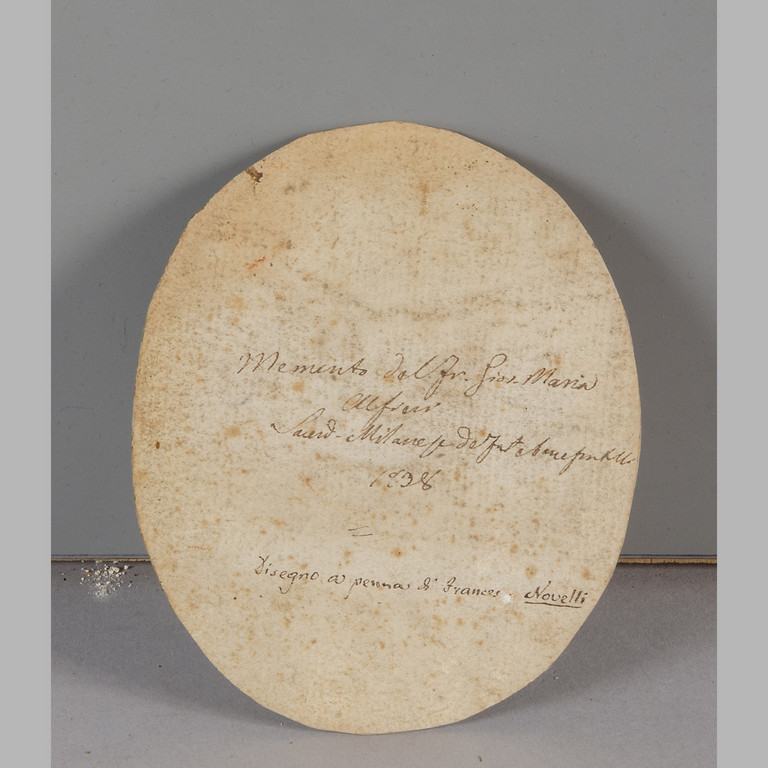 Memento del Fr. Gios. Maria
Alfieri
Sacerd. Milanese
1838
=
Disegno a penna di Frances. Novelli